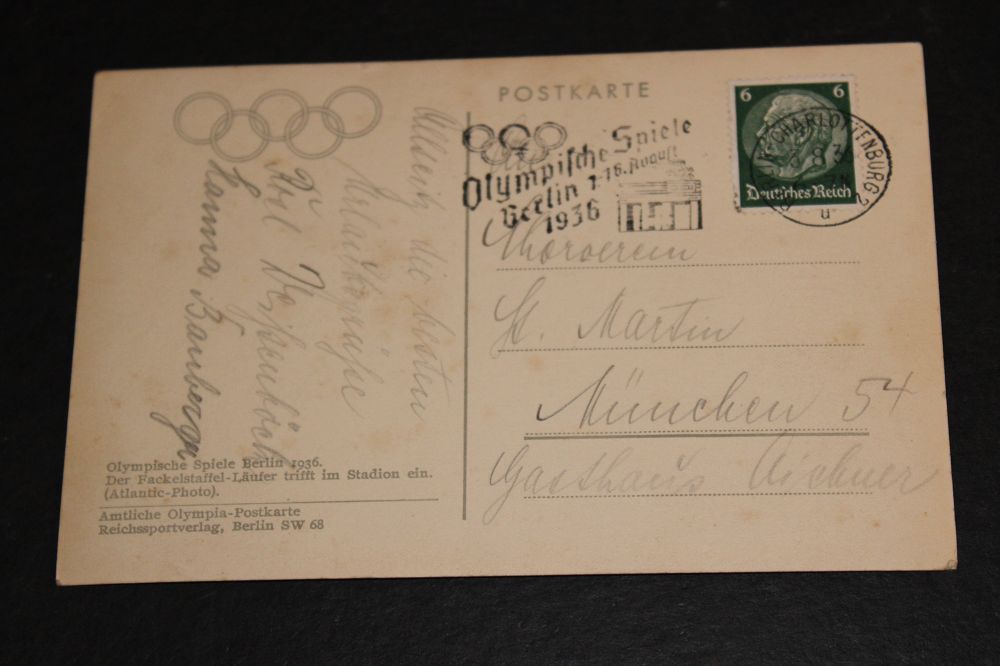 POSTKARTE
Olympische Spiele
Berlin 1.-16. August
1936
6 6
Deutsches Reich
CHARLOTTENBURG 2
u
St. Martin
München 54
Gasthaus Aichner
Allseits die besten
Hanna Bamberger
Olympische Spiele Berlin 1936.
Der Fackelstaffel-Läufer trifft im Stadion ein.
(Atlantic-Photo).
Amtliche Olympia-Postkarte
Reichssportverlag, Berlin SW 68